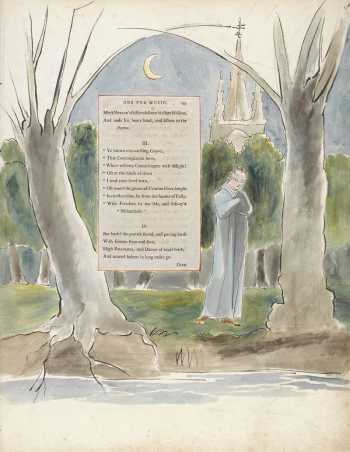 ODE FOR MUSIC.
Meek Newton's self bends from his state sublime,
And nods his hoary head, and listens to the
rhyme.
III.
" Ye brown o'er-arching Groves,
" That Contemplation loves,
" Where willowy Camus lingers with delight!
" Oft at the blush of dawn
" I trod your level lawn,
" Oft woo'd the gleam of Cynthia silver-bright
" In cloisters dim, far from the haunts of Folly,
" With Freedom by my side, and soft-ey'd
" Melancholy."
IV.
But hark! the portals sound, and pacing forth
With solemn steps and slow,
High Potentates, and Dames of royal birth,
And mitred fathers in long order go:
Great